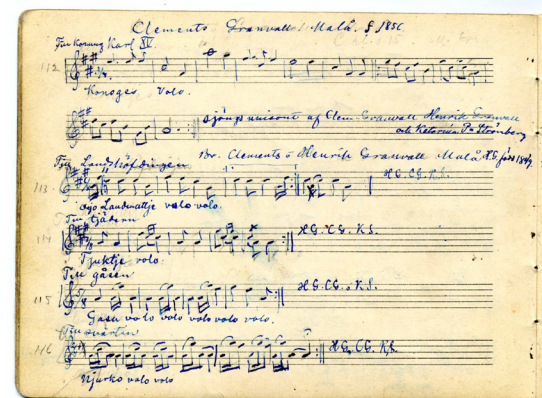 Clements Granvall, Malå. f. 1850.
Till konung Karl XV.
112
Konoges Volo.
sjöngs unisont af Clem. Granvall Henrik Granvall
och Strömberg
Till Landshöfdingen
Br. Clements o Henrik Granvall Malå H.G. född
113. H.G. C.G. K.S.
ojo Landwattje volo volo.
Till tjädern
114 H.G. C.G. K.S.
Tjuktje volo.
Till gåsen
115 H.G. C.G. o K.S.
Gasa volo volo volo volo volo.
Till svärtan
116 H.G. C.G. K.S.
Njurko volo volo